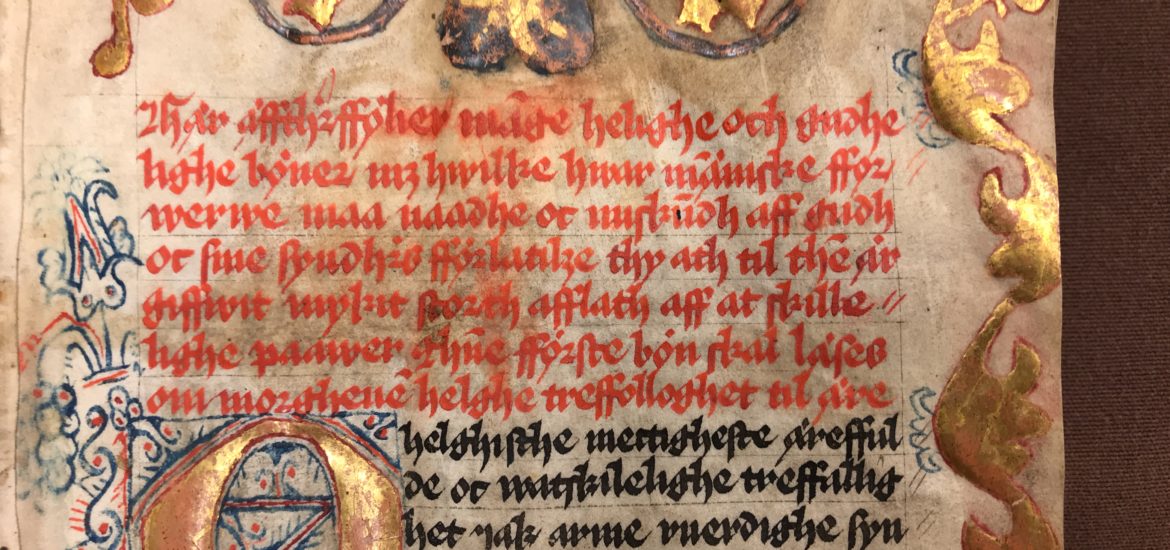 Thær æffthr ffylier māge helighe och gudhe
lighe böner mz hwilke hwar mānniske ffor-
werwe maa naadhe oc miskūdh aff gudh
oc sine syndhrs fförlatilze thy ath til thē är
giffwit mykit storth afflath aff at skille-
lighe paawer thn̄e fförste bön skal läses
om morghenē helghe treffolloghet til äre
O helghisthe mettigheste ärefful
de oc watskilelighe treffullig
het jak arme werdighe syn